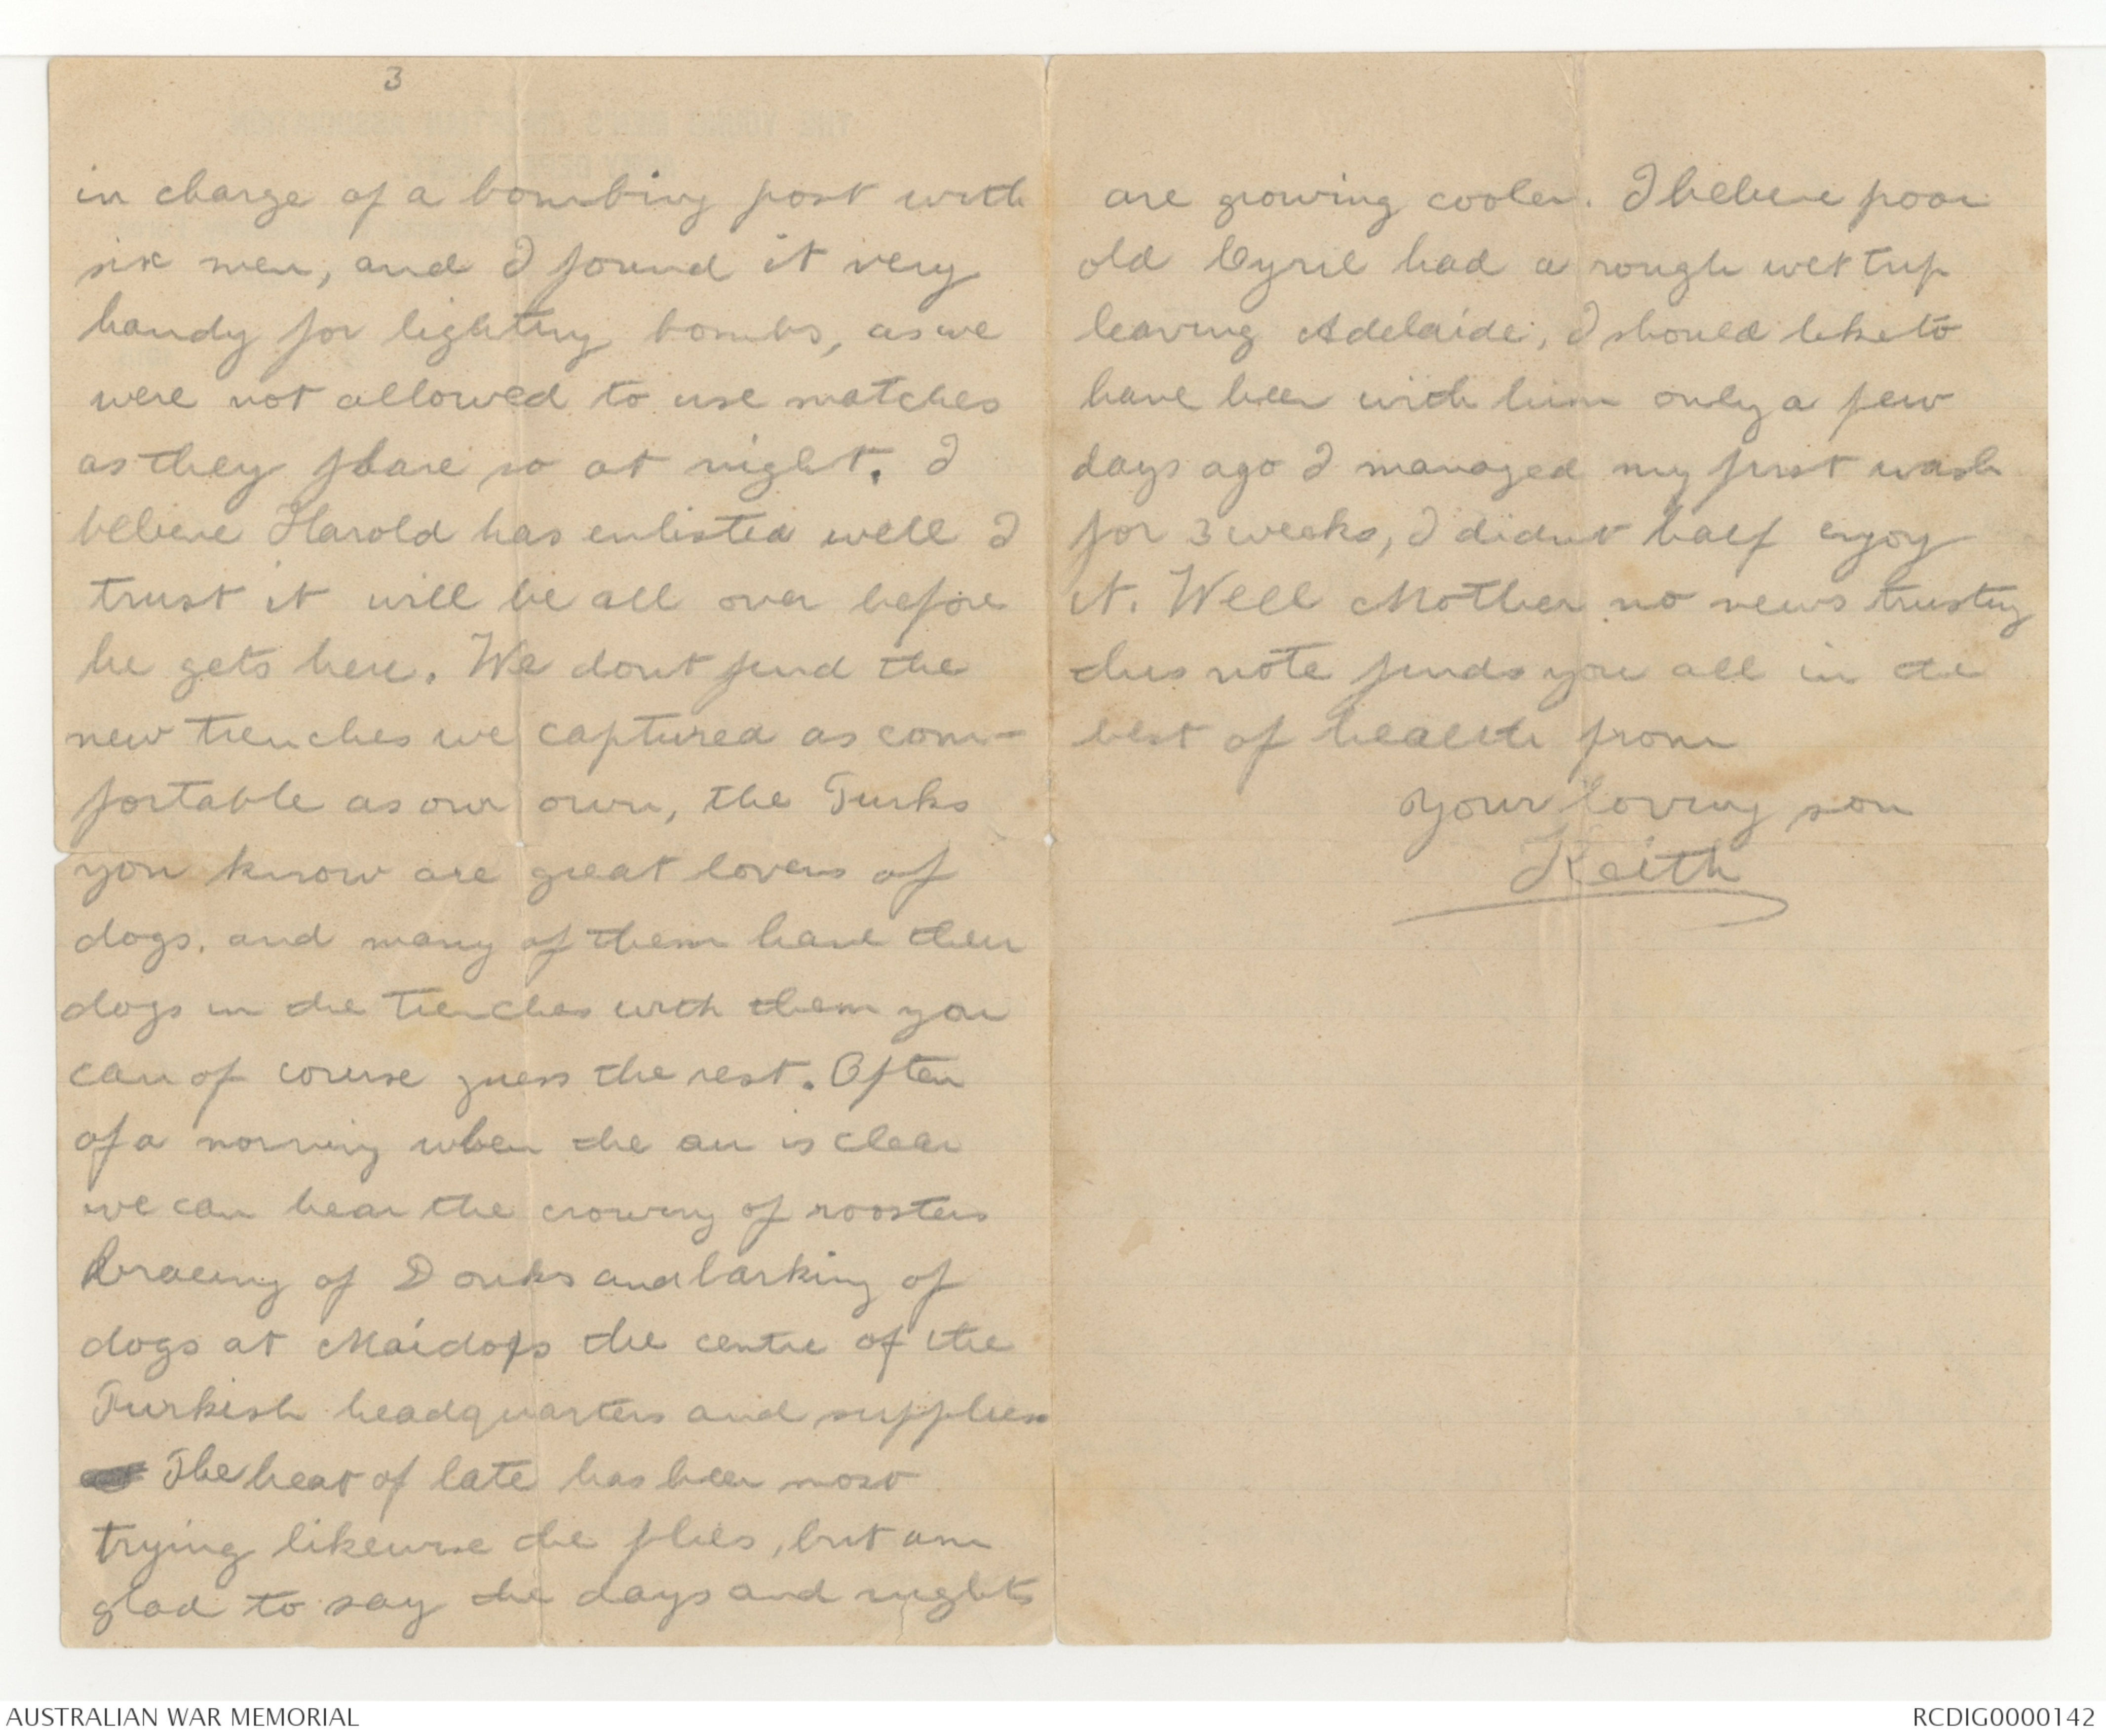 3
in charge of a bombing post with
six men, and I found it very
handy for lighting bombs, as we
were not allowed to use matches
as they flare so at night. I
believe Harold has enlisted well I
trust it will be all over before
he gets here. We dont find the
new trenches we captured as com-
fortable as our own, the Turks
you know are great lovers of
dogs. and many of them have their
dogs in the trenches with them you
can of course guess the rest. Often
of a morning when the air is clear
we can hear the crowing of roosters
braeing of Donks and barking of
dogs at Maidos the centre of the
Turkish headquarters and supplies
The heat of late has been most
trying likewise the flies, but am
glad to say the days and nights
are growing cooler. I believe poor
old Cyril had a rough wet trip
leaving Adelaide, I should like to
have been with him only a few
days ago I managed my first wash
for 3 weeks, I didnt half enjoy
it. Well Mother no news trusting
this note finds you all in the
best of health from
your loving son
Keith
AUSTRALIAN WAR MEMORIAL
RCDIG0000142